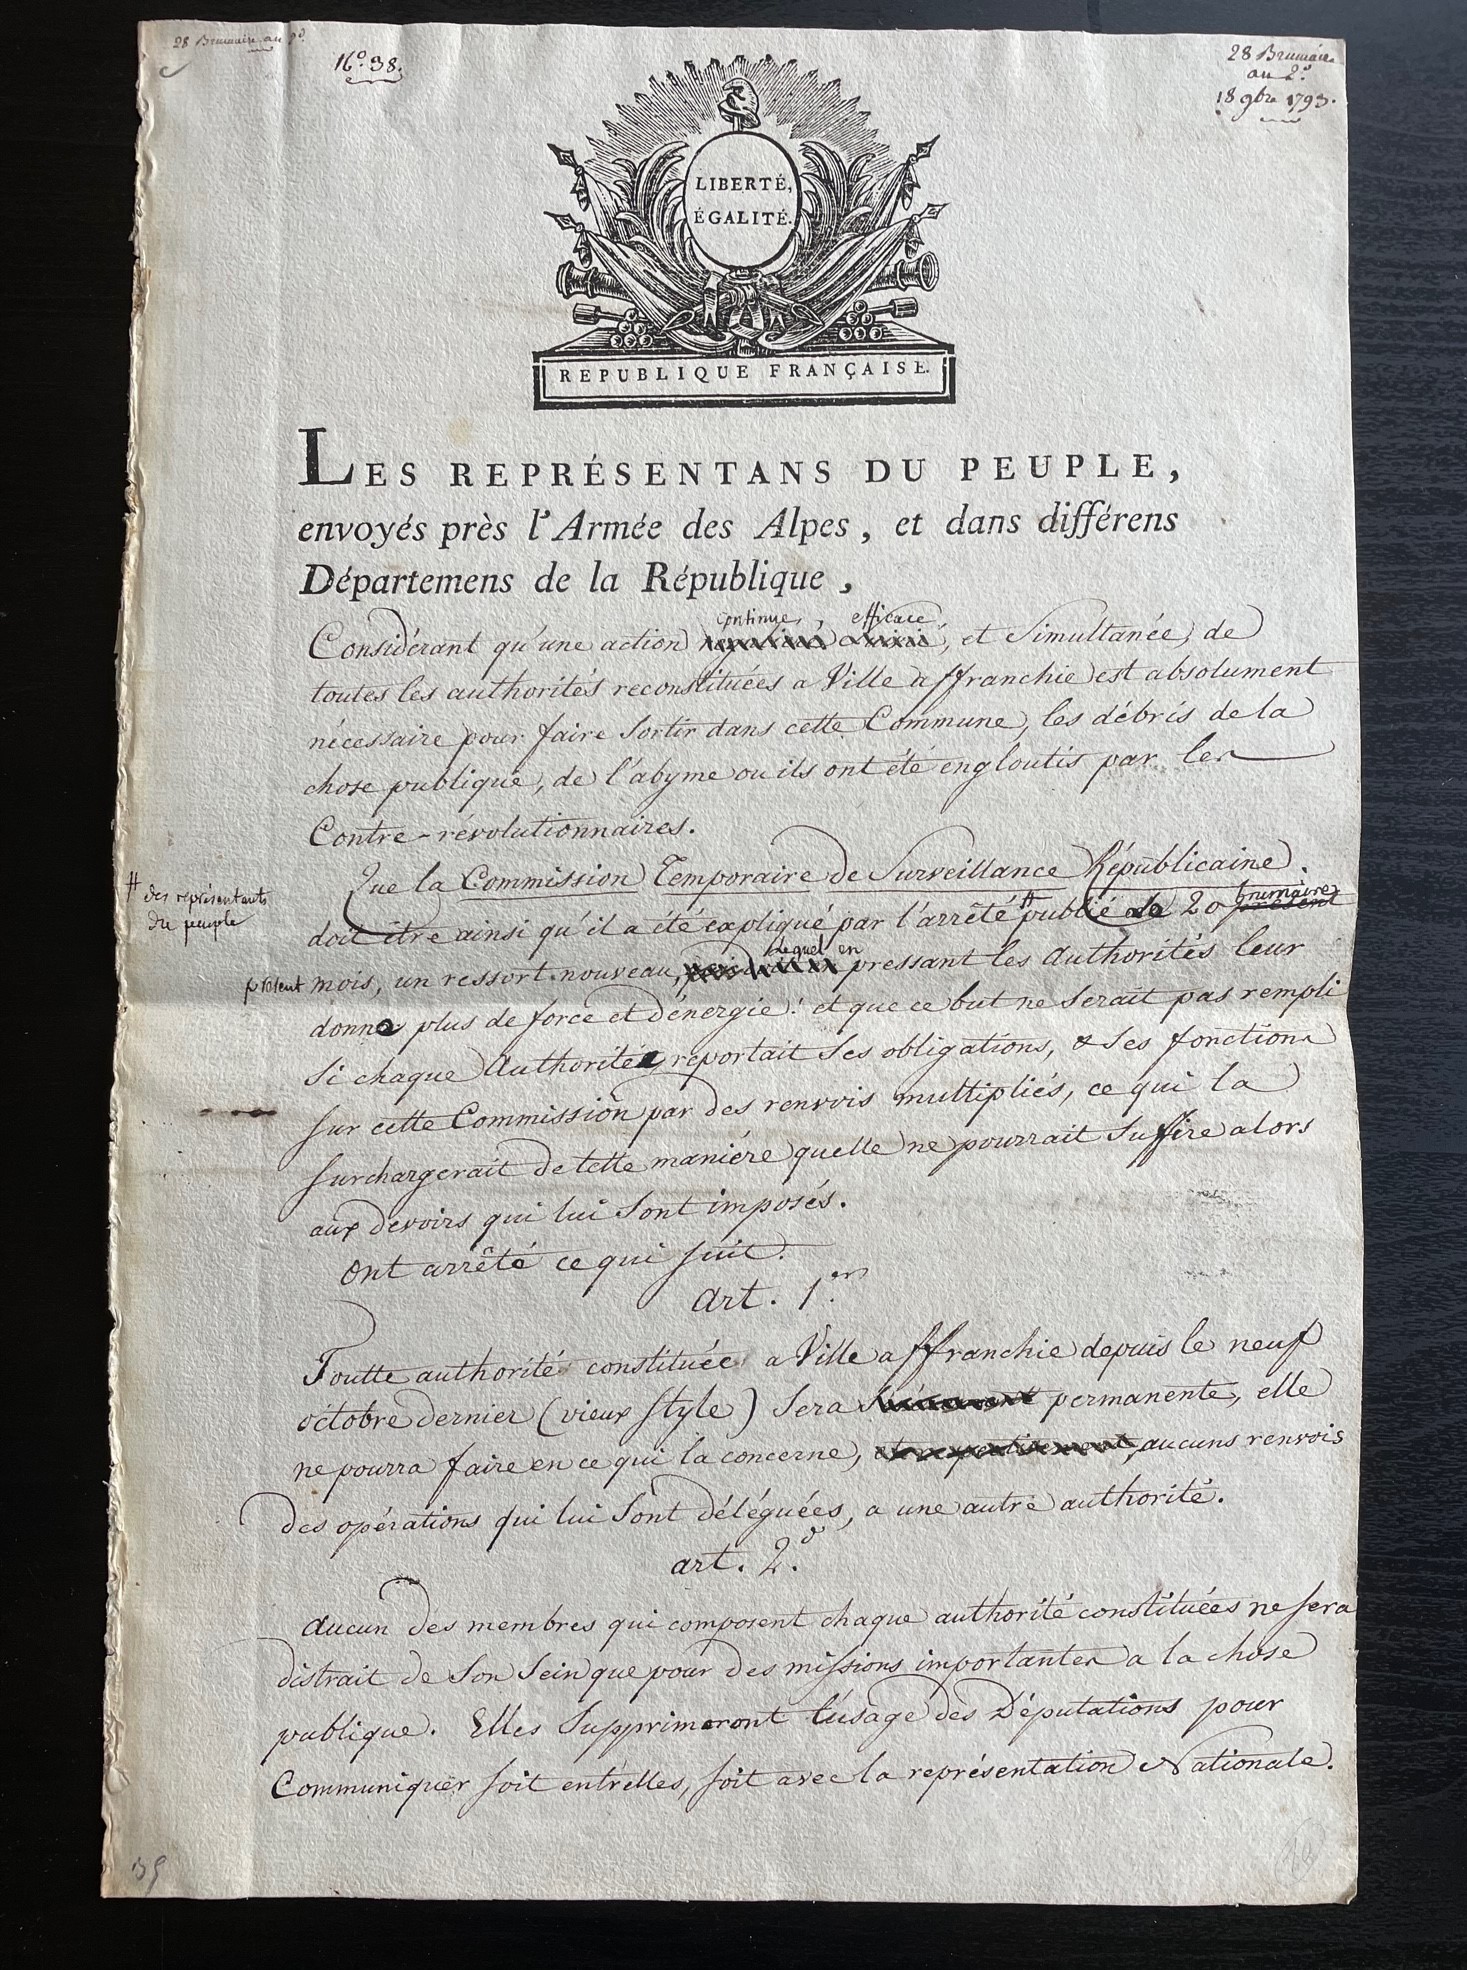 28 Brumaire an 2d.
N.o 38.
28 Brumaire
an 2.d
18 9bre 1793.
LIBERTÉ,
ÉGALITÉ.
REPUBLIQUE FRANÇAISE.
LES REPRÉSENTANS DU PEUPLE,
envoyés près l'Armée des Alpes, et dans différens
Départemens de la République,
continue, efficace
Considérant qu'une action , et Simultanée, de
toutes les authorités reconstituées a Ville affranchie est absolument
nécessaire pour faire Sortir dans cette Commune, les débris de la
chose publique, de l'abyme ou ils ont été engloutis par les
Contre-révolutionnaires.
Que la Commission Temporaire de Surveillance Républicaine.
# des représentants
du peuple
brumaire
doit être ainsi qu'il a été expliqué par l'arrêté # publié le 20 présent
lequel en
présent mois, un ressort nouveau, pressant les Authorités leur
donne plus de force et d'énergie! et que ce but ne Serait pas rempli
Si chaque Authorité reportait Ses obligations, & Ses fonctions
Sur cette Commission par des renvois multipliés, ce qui la
Surchargerait de telle maniére quelle ne pourrait Suffire alors
aux devoirs qui lui Sont imposés.
Ont arrêté ce qui Suit.
Art. 1.er
Toutte authorité constituée a Ville affranchie depuis le neuf
octobre dernier (vieux Style) Sera permanente, elle
ne pourra faire en ce qui la concerne, aucuns renvois
des opérations qui lui Sont déléguées, a une autre authorité.
art. 2.d
Aucun des membres qui composent chaque authorité constituées ne Sera
distrait de Son Sein que pour des missions importantes a la chose
publique. Elles Supprimeront l'usage des Députations pour
Communiquer Soit entr'elles, Soit avec la représentation Nationale.